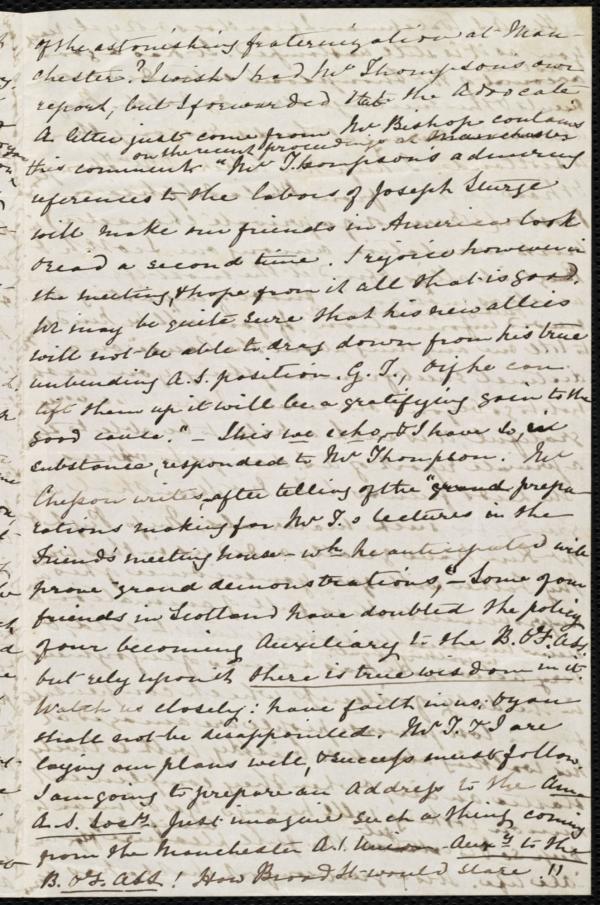 of the astonishing fraternization at Man-
chester? I wish I had Mr Thompson's own
report, but I forwarded that to the Advocate.
A letter just come from Mr Bishop contains
on the recent proceedings at Manchester
this comment. "Mr Thompson's admiring
references to the labors of Joseph Sturge
will make our friends in America look
& read a second time. I rejoice however in
the meeting, & hope from it all that is good.
We may be quite sure that his new allies
will not be able to drag down from his true
unbending A.S. position. G. T., & if he can
lift them up it will be a gratifying gain to the
good cause." — This we echo, & I have so, in
substance, responded to Mr Thompson. Mr
Chesson writes, after telling of the "grand prepa-
rations making for Mr T.s lectures in the
Friend's meeting house — wh. he anticipated will
prove "grand demonstrations," — "Some of our
friends in Scotland have doubted the policy
of our becoming Auxiliary to the B. & F. Ass.
but rely upon it there is true wisdom in it.
Watch us closely: have faith in us: & you
shall not be disappointed. Mr T. & I are
laying our plans well, & success must follow.
I am going to prepare an Address to the Ame
A.S. Socy. Just imagine such a thing coming
from the Manchester A.S. Union Auxy to the
B. & F. Ass! How Broad St would stare!!